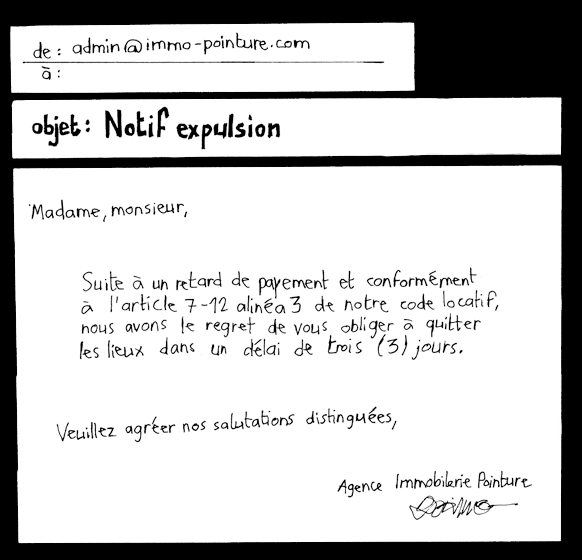 de : admin@immo-pointure.com
à :
objet : Notif expulsion
Madame, monsieur,
Suite à un retard de payement et conformément
à l'article 7-12 alinéa 3 de notre code locatif,
nous avons le regret de vous obliger à quitter
les lieux dans un délai de trois (3) jours.
Veuillez agréer nos salutations distinguées,
Agence Immobilerie Pointure